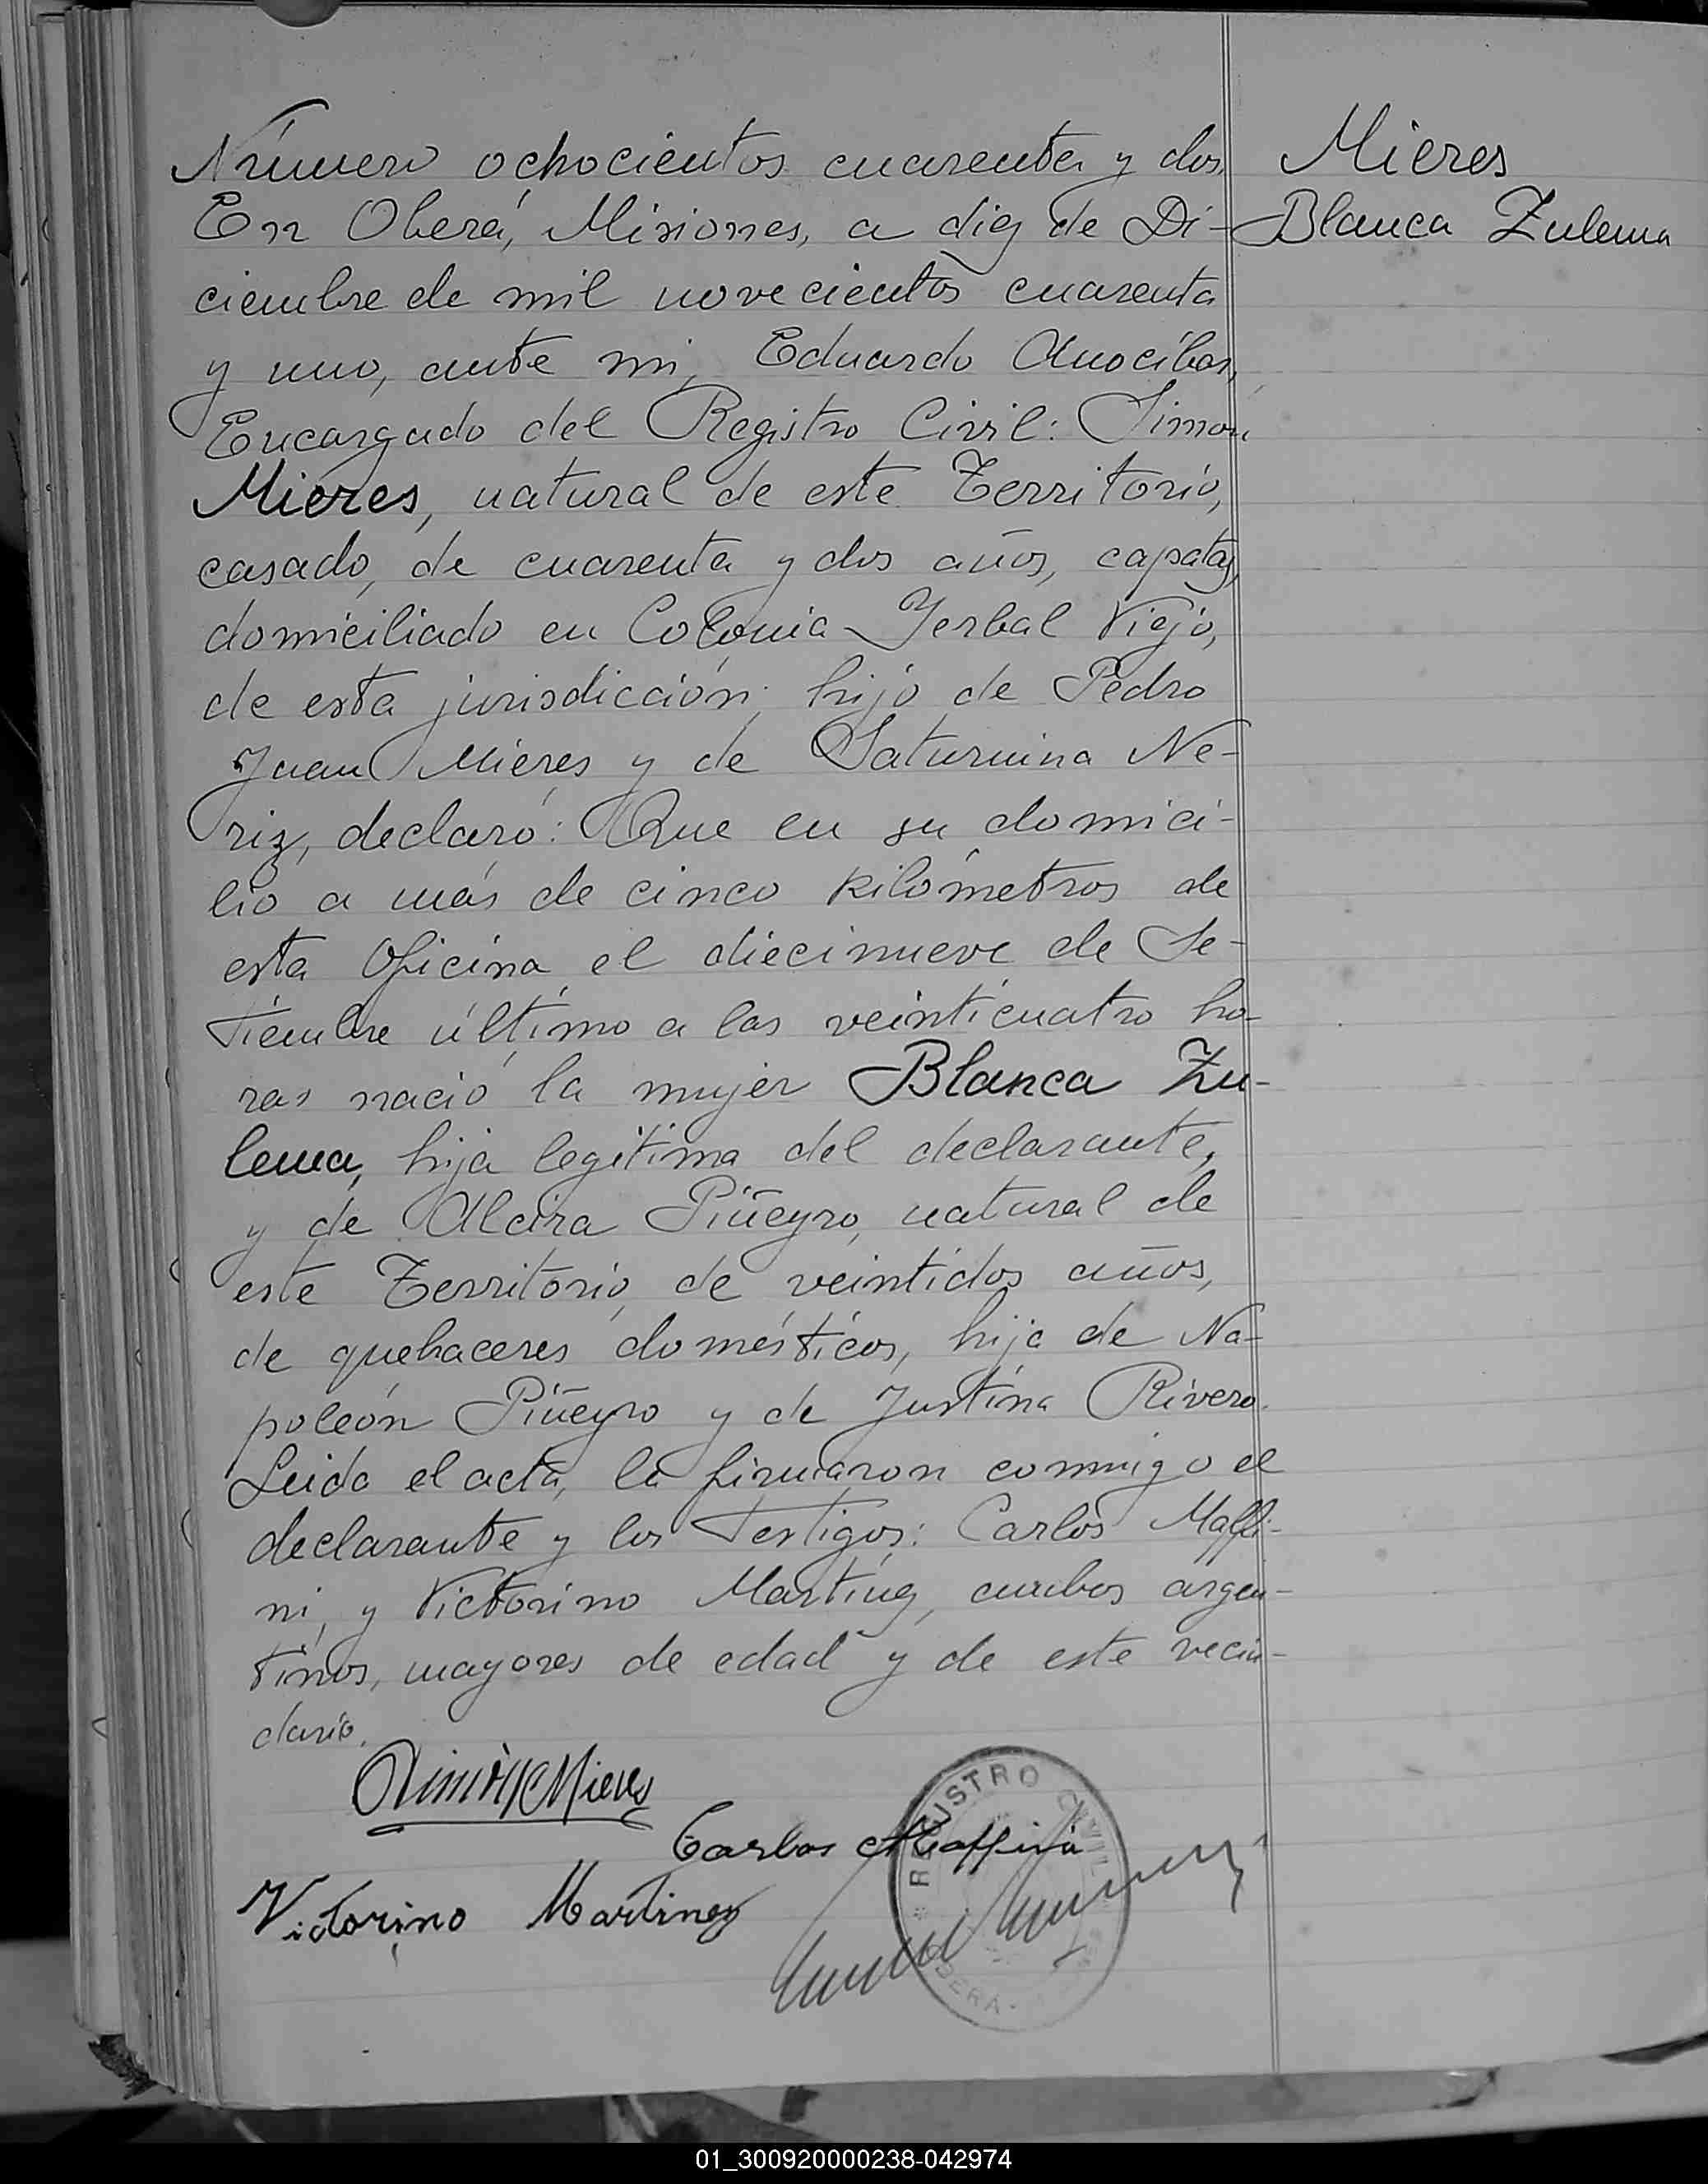 Número ochocientos cuarenta y dos.
En Oberá, Misiones, a diez de Di-
ciembre de mil novecientos cuarenta
y uno, ante mi, Eduardo Anocíbar,
Encargado del Registro Civil: Simón
Mieres, natural de este Territorio,
casado, de cuarenta y dos años, capataz,
domiciliado en Colonia Yerbal Viejo,
de esta jurisdicción; hijo de Pedro
Juan Mieres y de Saturnina Ne-
riz, declaró: Que en su domici-
lio a más de cinco kilómetros de
esta Oficina, el diecinueve de Se-
tiembre último a las veinticuatro ho-
ras nació la mujer Blanca Zu-
lema, hija legítima del declarante,
y de Alcira Piñeyro, natural de
este Territorio, de veintidos años,
de quehaceres domésticos, hija de Na-
poleón Piñeyro y de Justina Rivero.
Leida el acta, la firmaron conmigo el
declarante y los testigos: Carlos Maffi-
ni, y Victorino Martínez, ambos argen-
tinos, mayores de edad y de este vecin-
dario.
Mieres
Blanca Zulema
Simón Mieres
Carlos Maffini
Victorino Martinez
REGISTRO CIVIL
OBERÁ
01_300920000238-042974